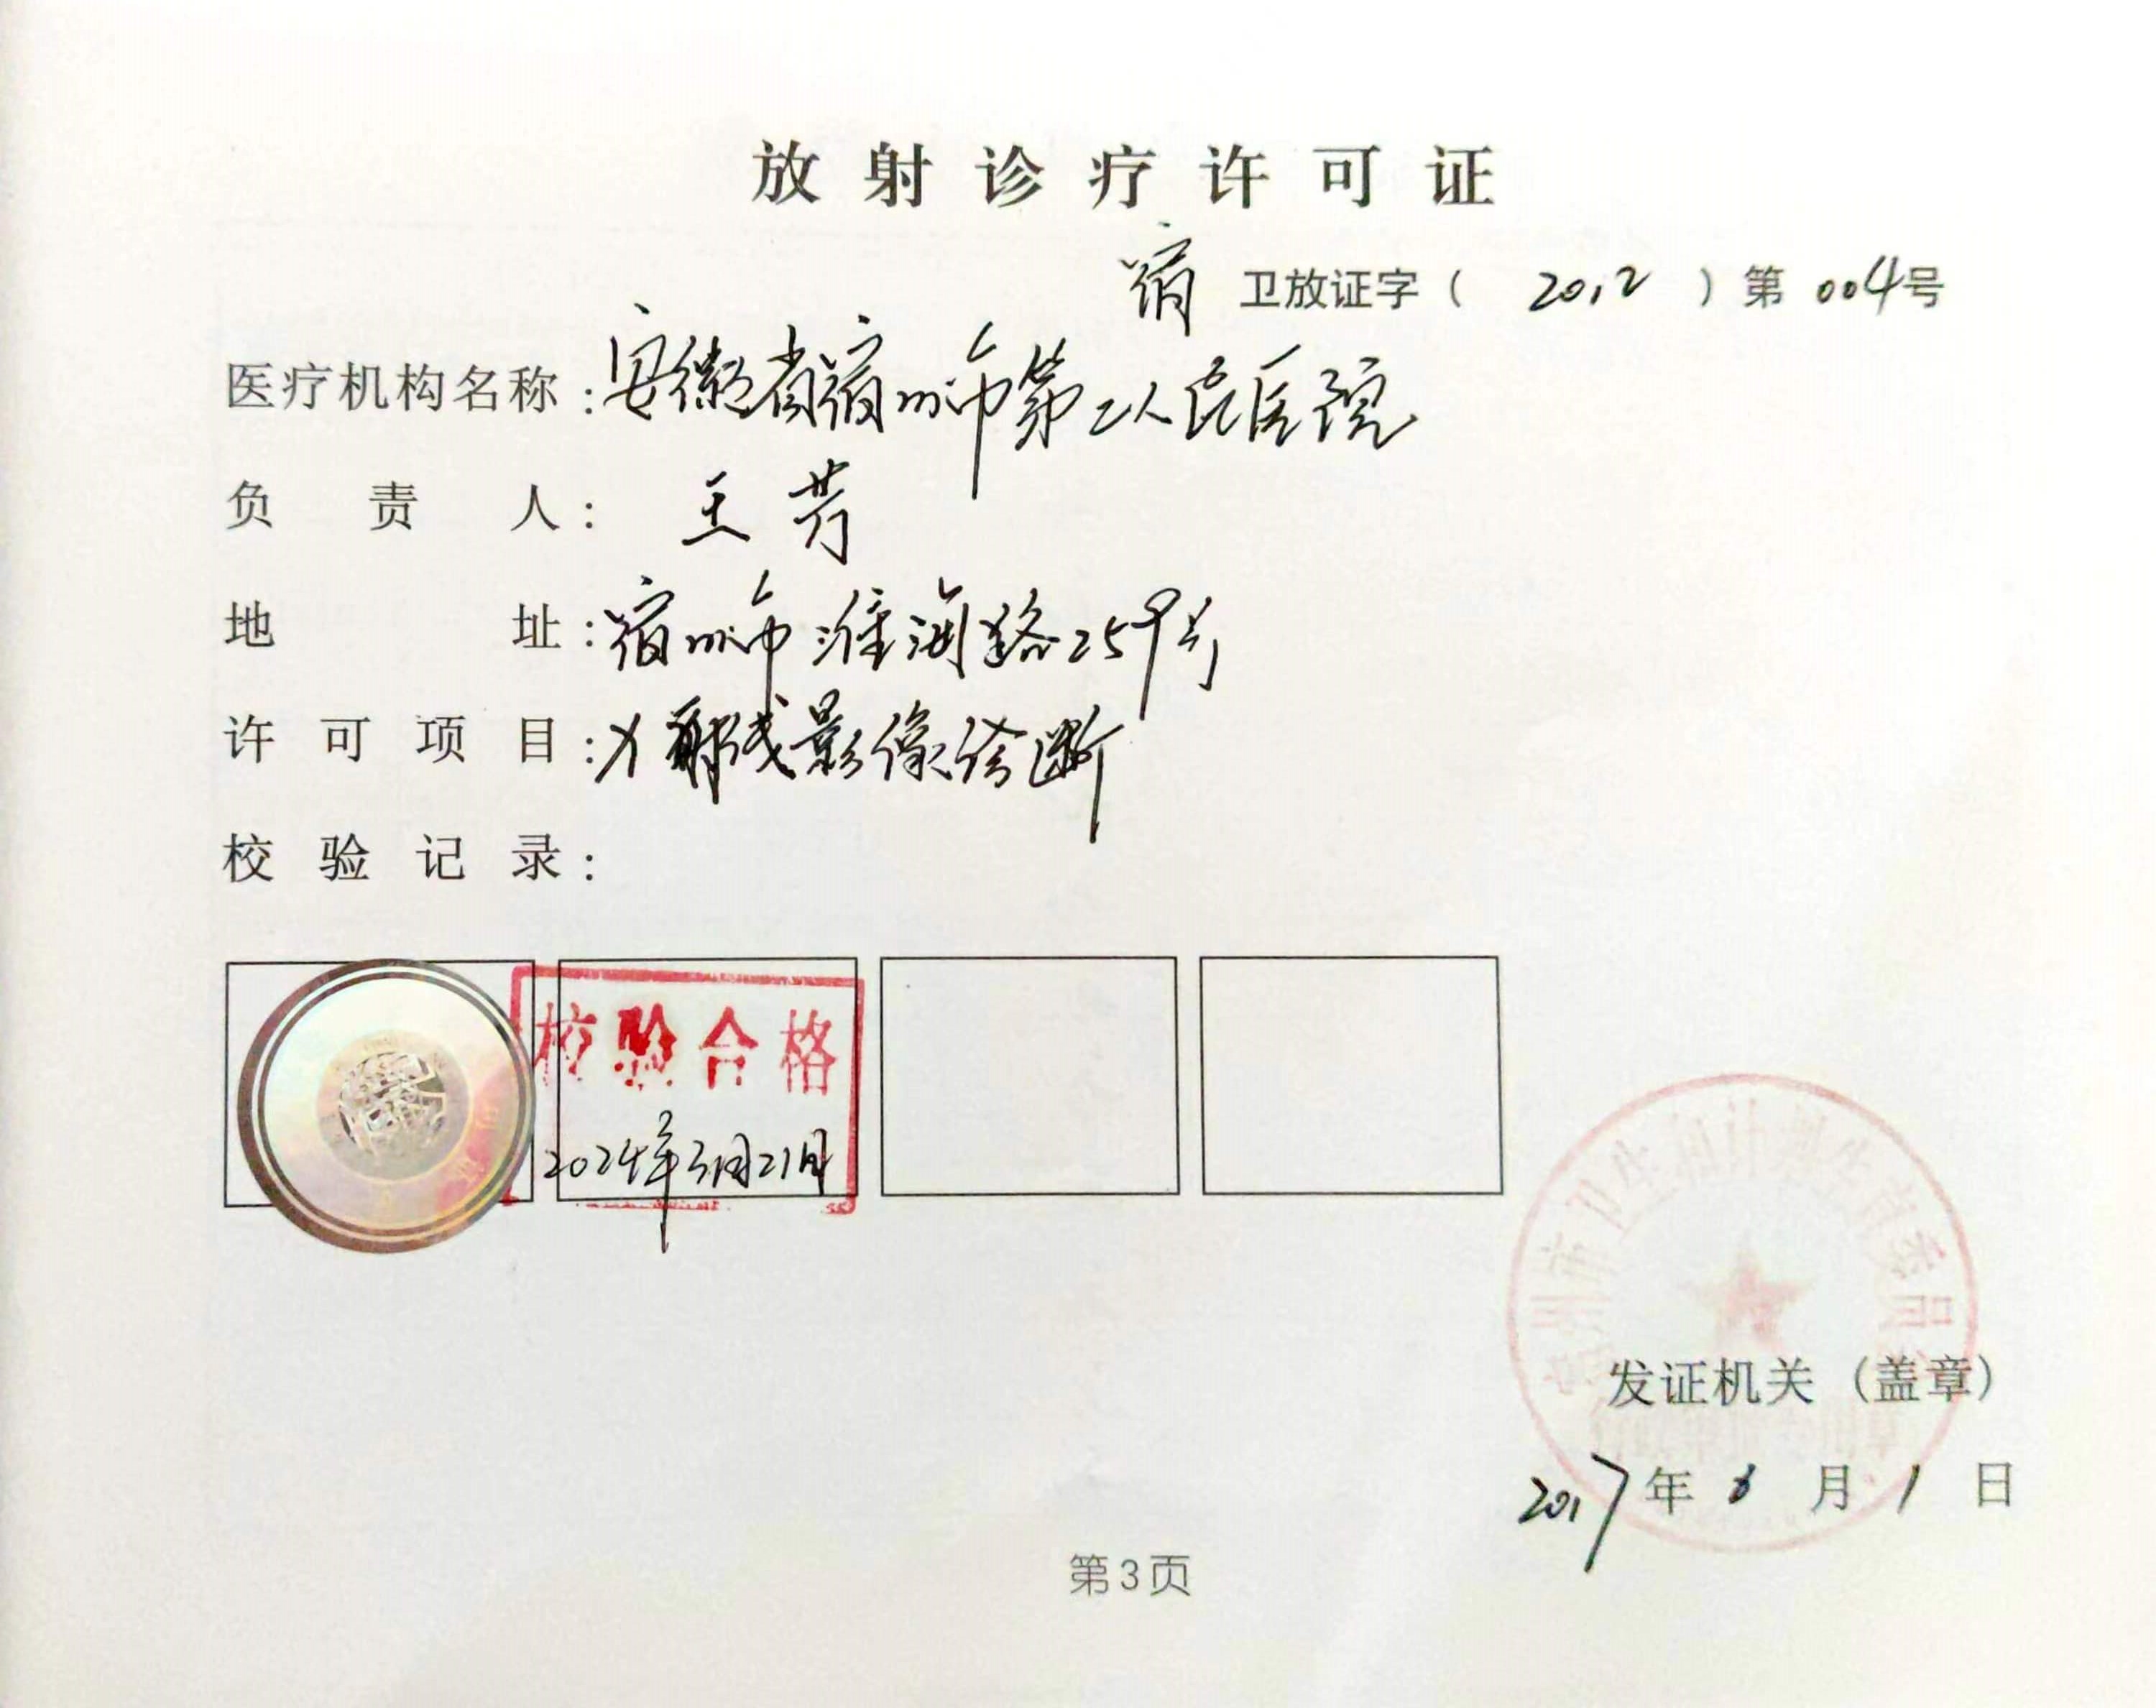 放射诊疗许可证
宿 卫放证字（ 2012 ）第 004号
医疗机构名称：安徽省宿州市第二人民医院
负责人： 王芳
地址：宿州市淮海路259号
许可项目：X射线影像诊断
校验记录：
校验合格
2024年3月21日
宿州市卫生和计划生育委员会
发证机关（盖章）
2017年 8 月 1 日
第3页